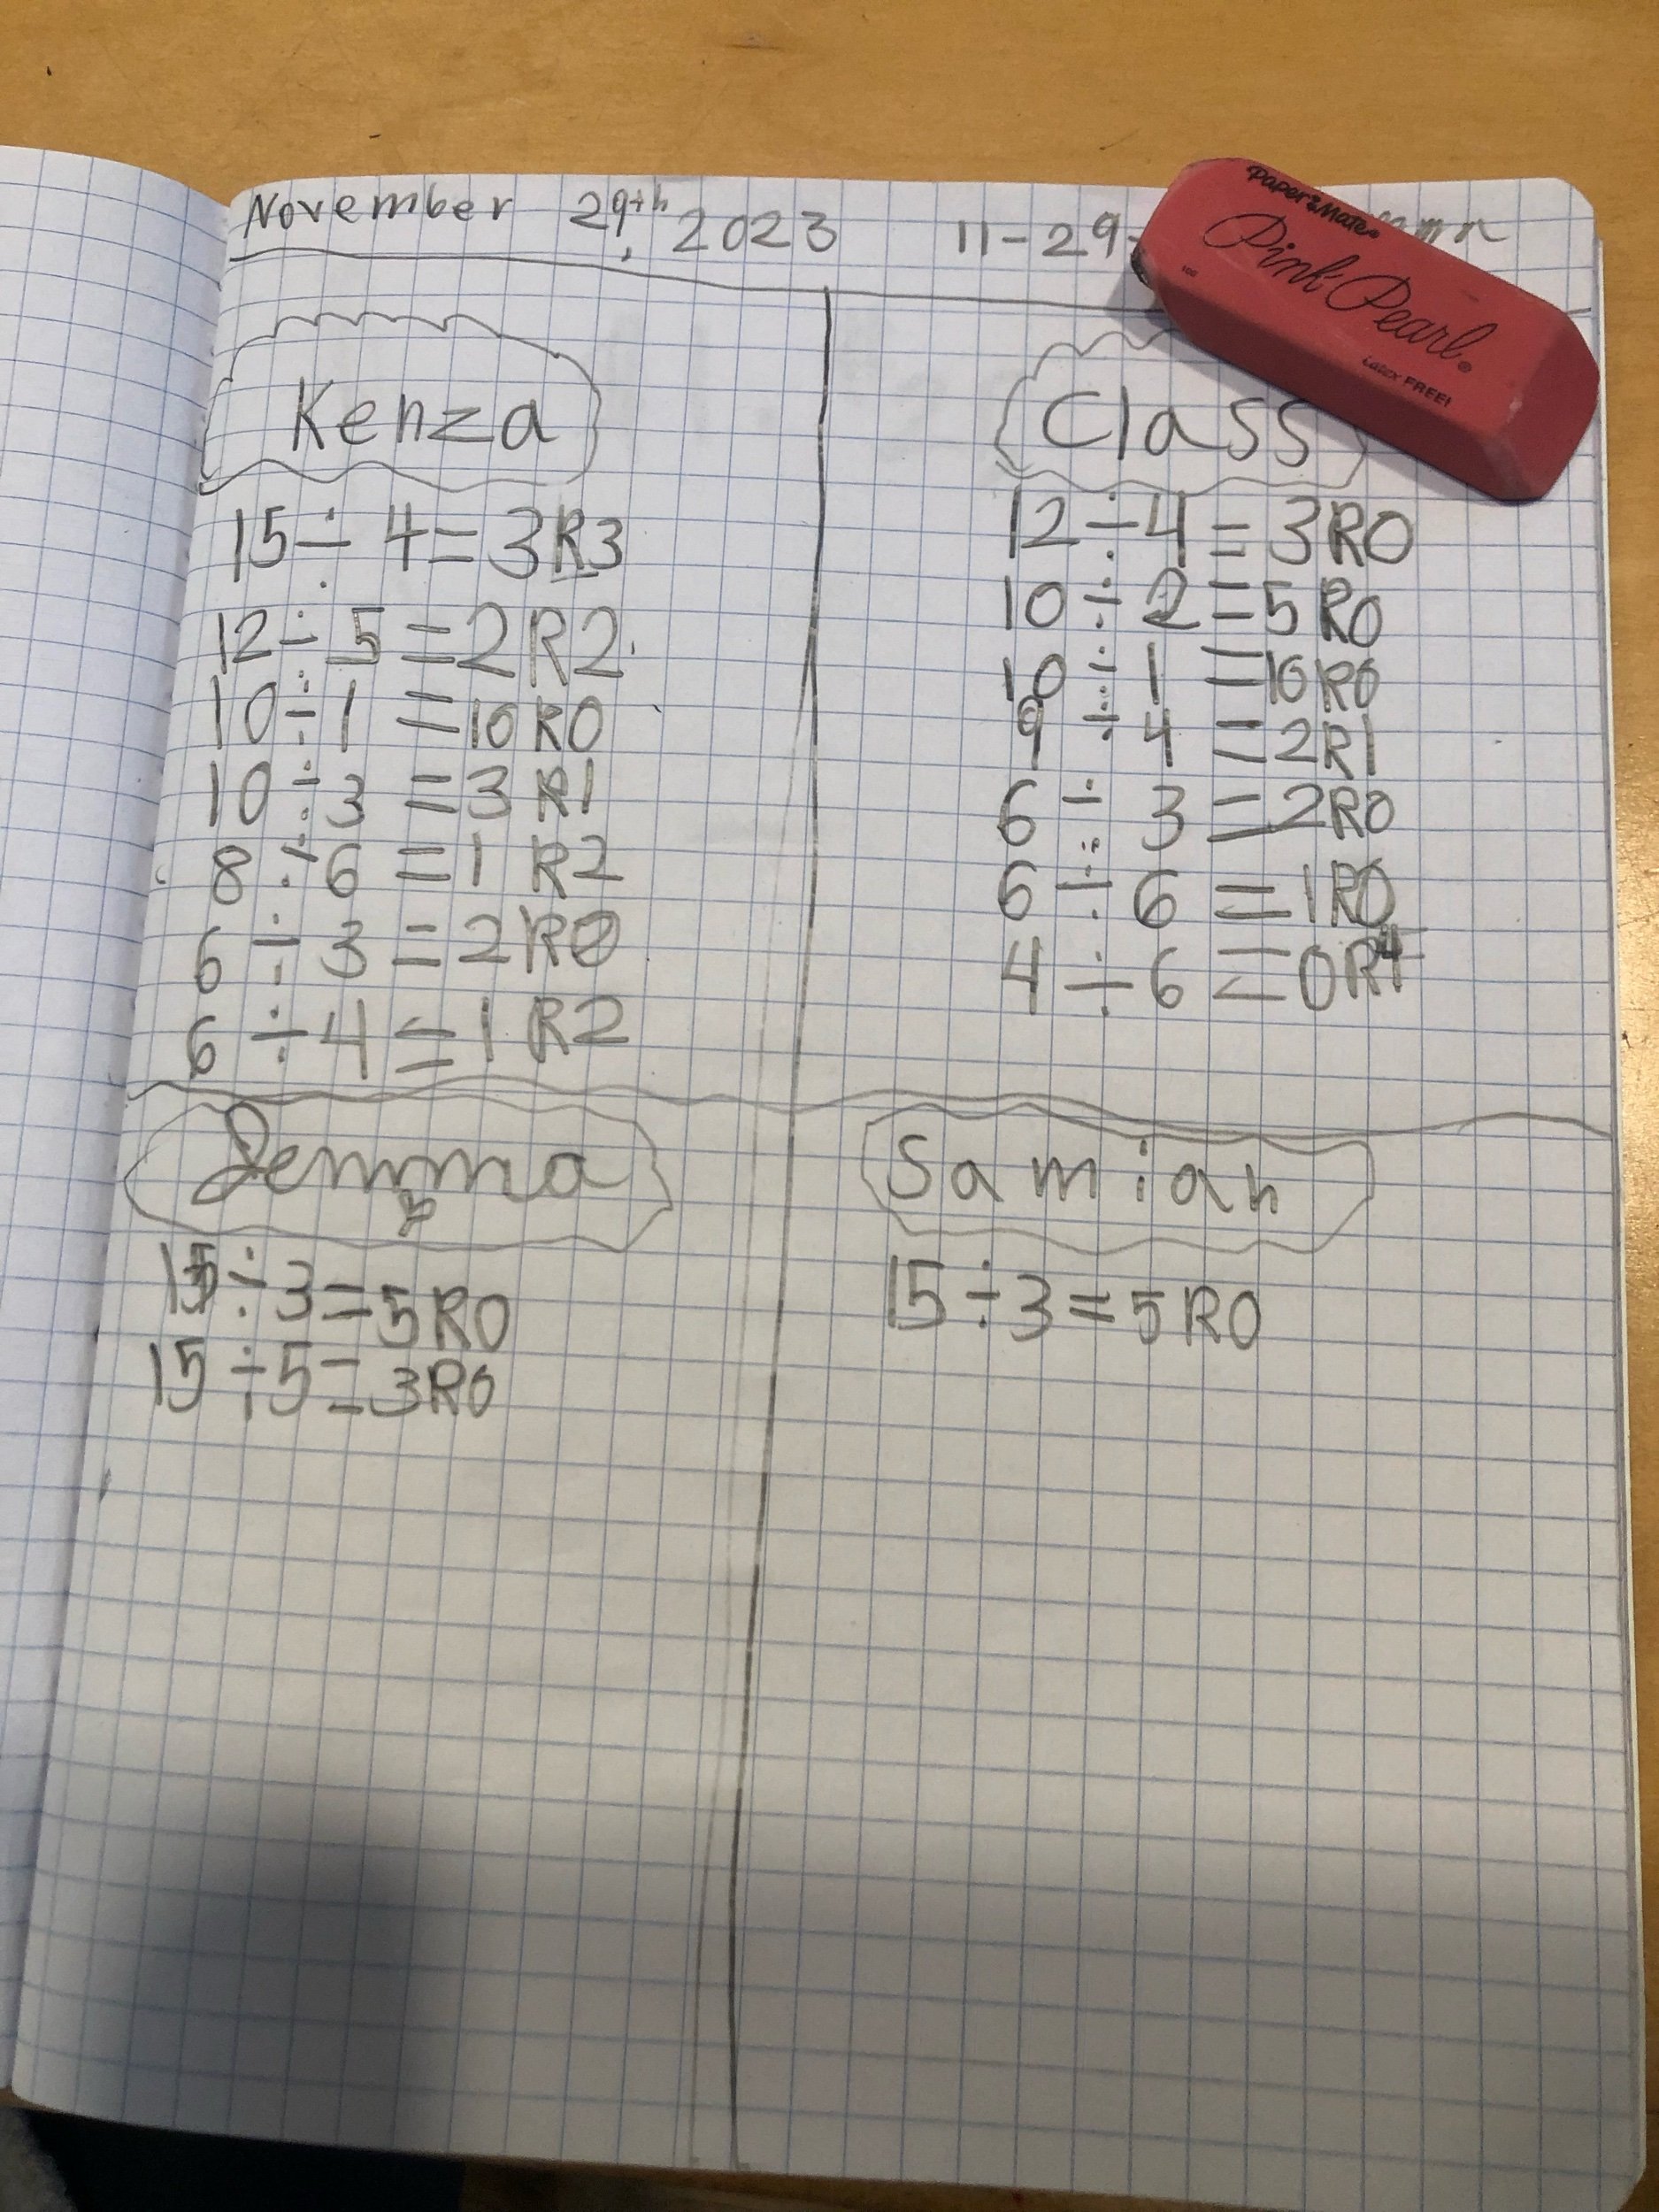 November 29th, 2023 11-29-
Paper Mate
Pink Pearl
100
Latex FREE!
Kenza
15 ÷ 4 = 3R3
12 ÷ 5 = 2R2
10 ÷ 1 = 10 R0
10 ÷ 3 = 3 R1
8 ÷ 6 = 1 R2
6 ÷ 3 = 2R0
6 ÷ 4 = 1 R2
Class
12 ÷ 4 = 3R0
10 ÷ 2 = 5 R0
10 ÷ 1 = 10 R0
9 ÷ 4 = 2R1
6 ÷ 3 = 2R0
6 ÷ 6 = 1R0
4 ÷ 6 = 0R4
Jemma
15 ÷ 3 = 5R0
15 ÷ 5 = 3R0
Samiah
15 ÷ 3 = 5R0